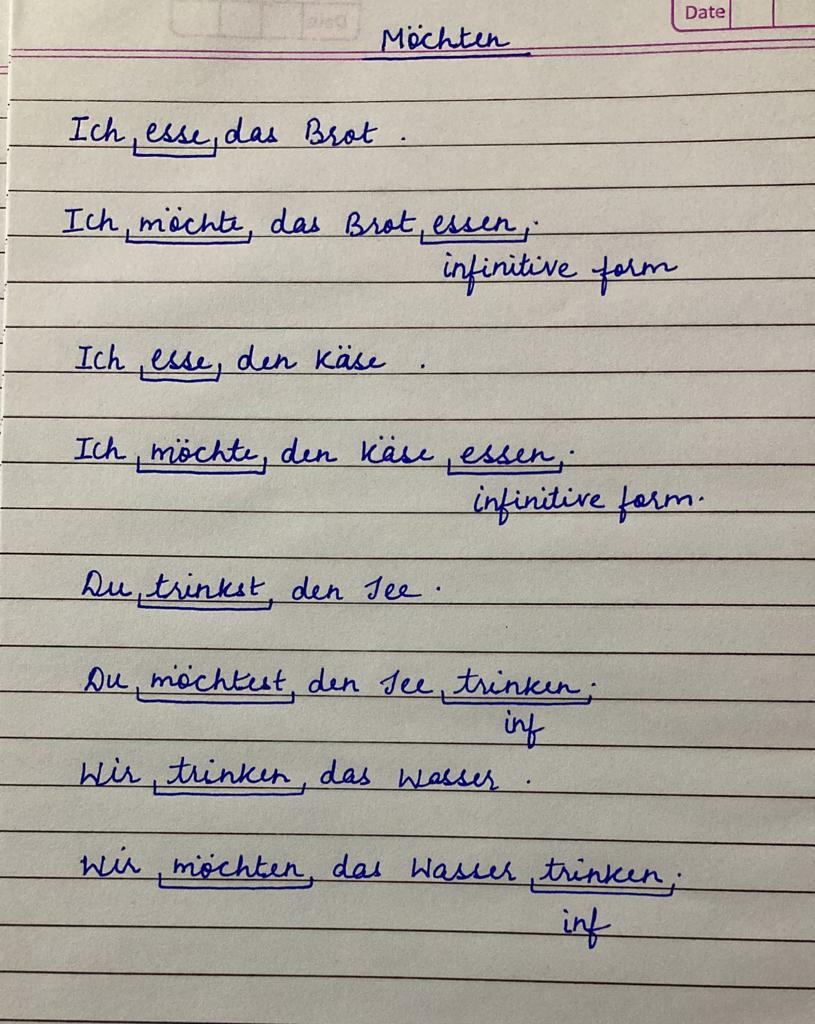 Date
Möchten
Ich esse das Brot.
Ich möchte das Brot essen.
infinitive form
Ich esse den Käse.
Ich möchte den Käse essen.
infinitive form.
Du trinkst den Tee.
Du möchtest den Tee trinken.
inf
Wir trinken das Wasser.
Wir möchten das Wasser trinken.
inf